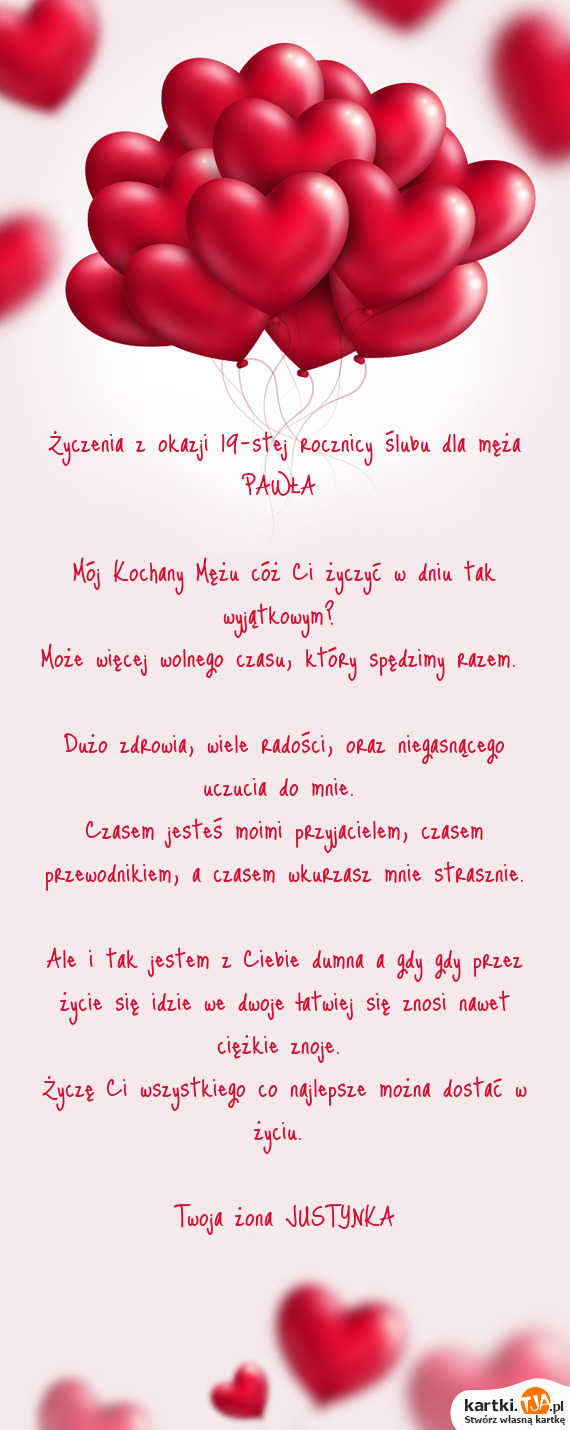 Życzenia z okazji 19-stej rocznicy ślubu dla męża
PAWŁA
Mój Kochany Mężu cóż Ci życzyć w dniu tak
wyjątkowym?
Może więcej wolnego czasu, który spędzimy razem.
Dużo zdrowia, wiele radości, oraz niegasnącego
uczucia do mnie.
Czasem jesteś moimi przyjacielem, czasem
przewodnikiem, a czasem wkurzasz mnie strasznie.
Ale i tak jestem z Ciebie dumna a gdy gdy przez
życie się idzie we dwoje łatwiej się znosi nawet
ciężkie znoje.
Życzę Ci wszystkiego co najlepsze można dostać w
życiu.
Twoja żona JUSTYNKA
kartki.TJA.pl
Stwórz własną kartkę